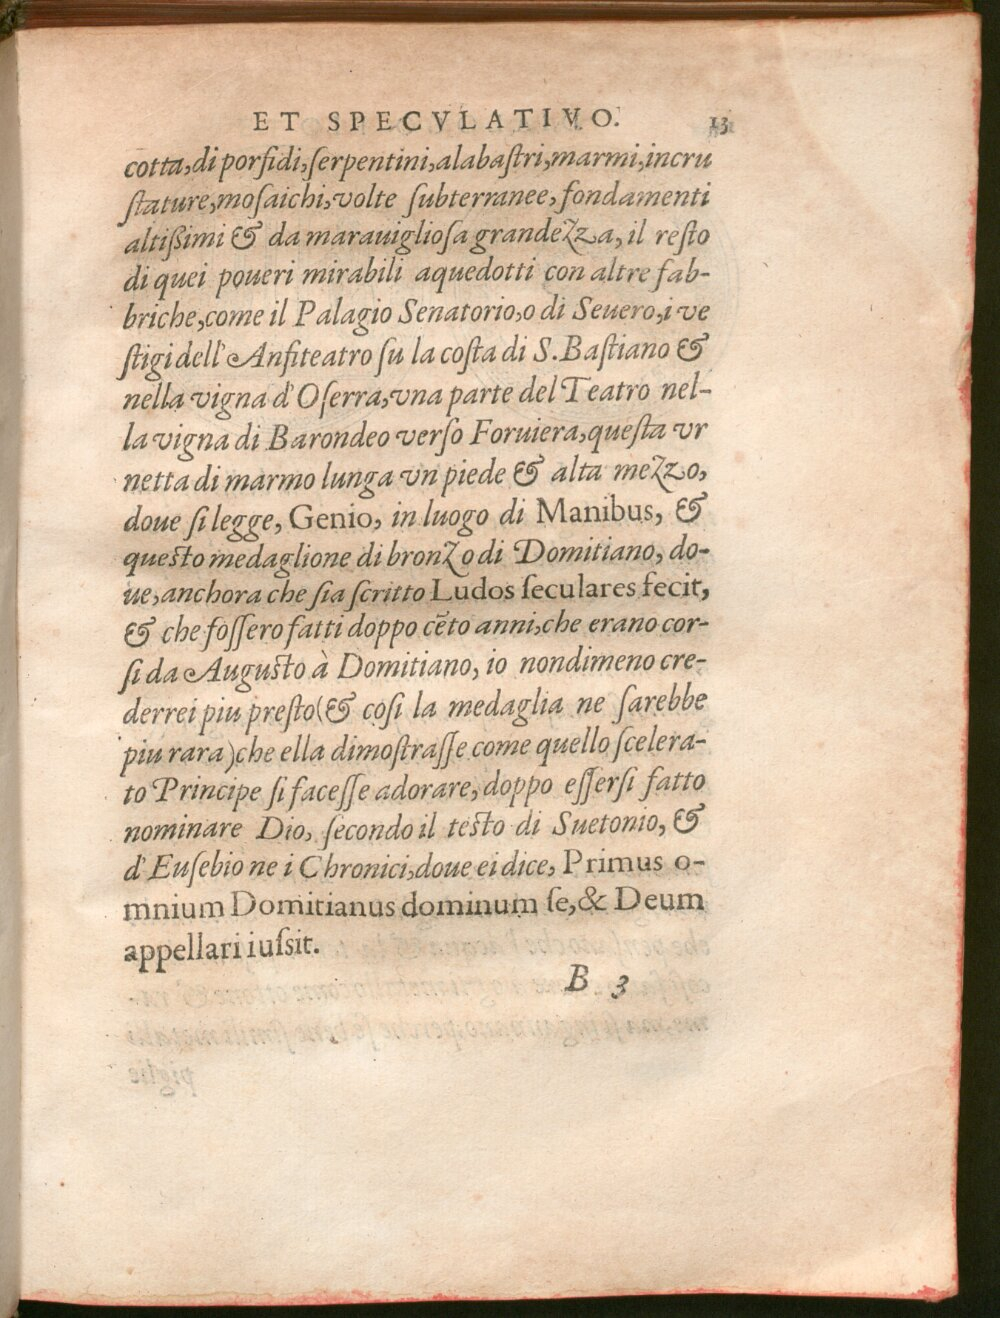 ET SPECVLATIVO. 13
cotta, di porfidi, serpentini, alabastri, marmi, incru
stature, mosaichi, volte subterranee, fondamenti
altißimi & da marauigliosa grandezza, il resto
di quei poueri mirabili aquedotti con altre fab-
briche, come il Palagio Senatorio, o di Seuero, i ve
stigi dell'Anfiteatro su la costa di S. Bastiano &
nella vigna d'Oserra, vna parte del Teatro nel-
la vigna di Barondeo verso Foruiera, questa vr
netta di marmo lunga vn piede & alta mezzo,
doue si legge, Genio, in luogo di Manibus, &
questo medaglione di bronzo di Domitiano, do-
ue, anchora che sia scritto Ludos seculares fecit,
& che fossero fatti doppo cēto anni, che erano cor-
si da Augusto à Domitiano, io nondimeno cre-
derrei piu presto (& cosi la medaglia ne sarebbe
piu rara) che ella dimostrasse come quello scelera-
to Principe si facesse adorare, doppo essersi fatto
nominare Dio, secondo il testo di Suetonio, &
d'Eusebio ne i Chronici, doue ei dice, Primus o-
mnium Domitianus dominum se, & Deum
appellari iussit.
B 3